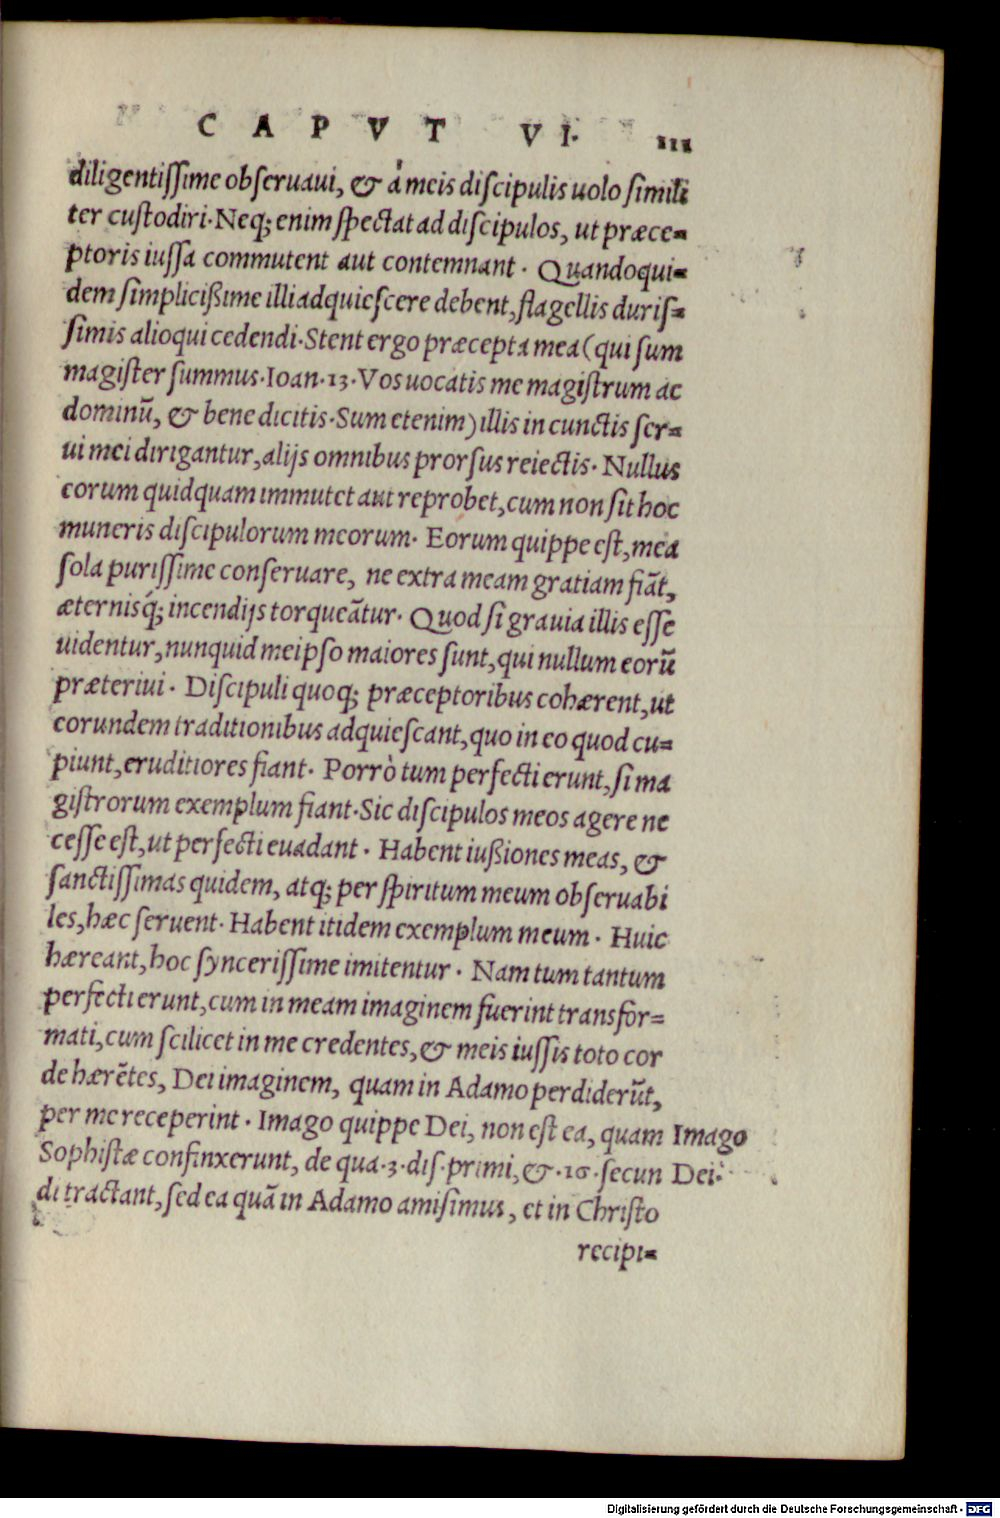 CAPVT VI. 111
diligentiſſime obſeruaui, & à meis diſcipulis uolo ſimili
ter cuſtodiri. Neq; enim ſpectat ad diſcipulos, ut præce=
ptoris iuſſa commutent aut contemnant. Quandoqui=
dem ſimplicißime illi adquieſcere debent, flagellis duriſ=
ſimis alioqui cedendi. Stent ergo præcepta mea (qui ſum
magiſter ſummus. Ioan. 13. Vos uocatis me magiſtrum ac
dominũ, & bene dicitis. Sum etenim) illis in cunctis ſer=
ui mei dirigantur, alijs omnibus prorſus reiectis. Nullus
eorum quidquam immutet aut reprobet, cum non ſit hoc
muneris diſcipulorum meorum. Eorum quippe eſt, mea
ſola puriſſime conſeruare, ne extra meam gratiam fiãt,
æternisq́; incendijs torqueãtur. Quod ſi grauia illis eſſe
uidentur, nunquid meipſo maiores ſunt, qui nullum eorũ
præteriui. Diſcipuli quoq; præceptoribus cohærent, ut
eorundem traditionibus adquieſcant, quo in eo quod cu=
piunt, eruditiores fiant. Porrò tum perfecti erunt, ſi ma
giſtrorum exemplum fiant. Sic diſcipulos meos agere ne
ceſſe eſt, ut perfecti euadant. Habent iußiones meas, &
ſanctiſſimas quidem, atq; per ſpiritum meum obſeruabi
les, hæc ſeruent. Habent itidem exemplum meum. Huic
hæreant, hoc ſynceriſſime imitentur. Nam tum tantum
perfecti erunt, cum in meam imaginem fuerint transfor=
mati, cum ſcilicet in me credentes, & meis iuſſis toto cor
de hærẽtes, Dei imaginem, quam in Adamo perdiderũt,
per me receperint. Imago quippe Dei, non eſt ea, quam Imago
Sophiſtæ confinxerunt, de qua. 3. diſ. primi, & . 16. ſecun Dei.
di tractant, ſed ea quã in Adamo amiſimus, et in Chriſto
recipi=
Digitalisierung gefördert durch die Deutsche Forschungsgemeinschaft - DFG